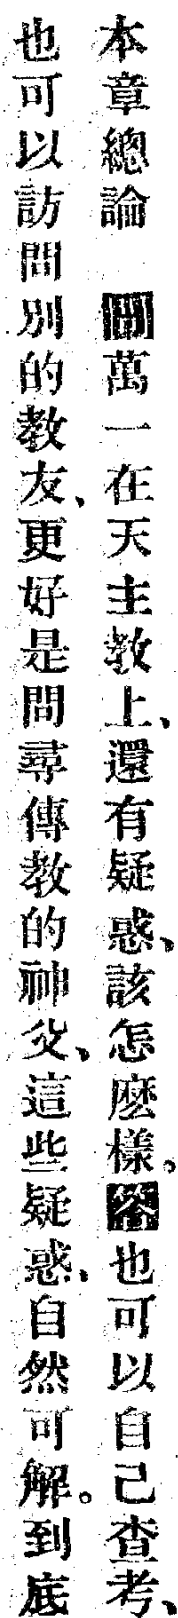 本章總論　問萬一在天主教上、還有疑惑、該怎麽樣。答也可以自己查考、
也可以訪問別的教友、更好是問尋傳教的神父、這些疑惑、自然可解。到底